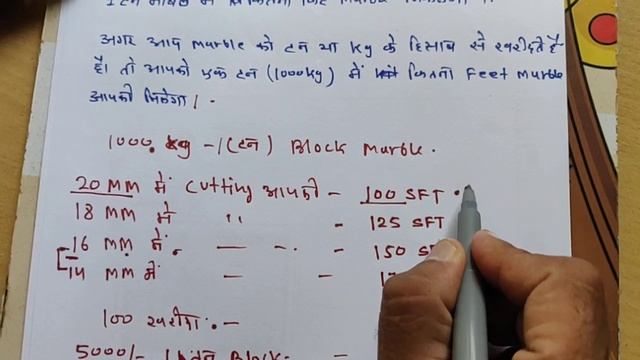 1 टन मार्बल में कितना फिट Marble निकलेगा ?
अगर आप Marble को टन या Kg के हिसाब से खरीदते है
है। तो आपको एक टन (1000Kg) में कितना Feet Marble
आपको मिलेगा।
1000 Kg - 1 (टन) Block Marble.
20 MM में Cutting आपको - 100 SFT
18 MM में ,, - 125 SFT
16 MM में. — -. - 150 SF
14 MM में — — - 17
100 खरीगा. —
5000/- 1 टन Block —